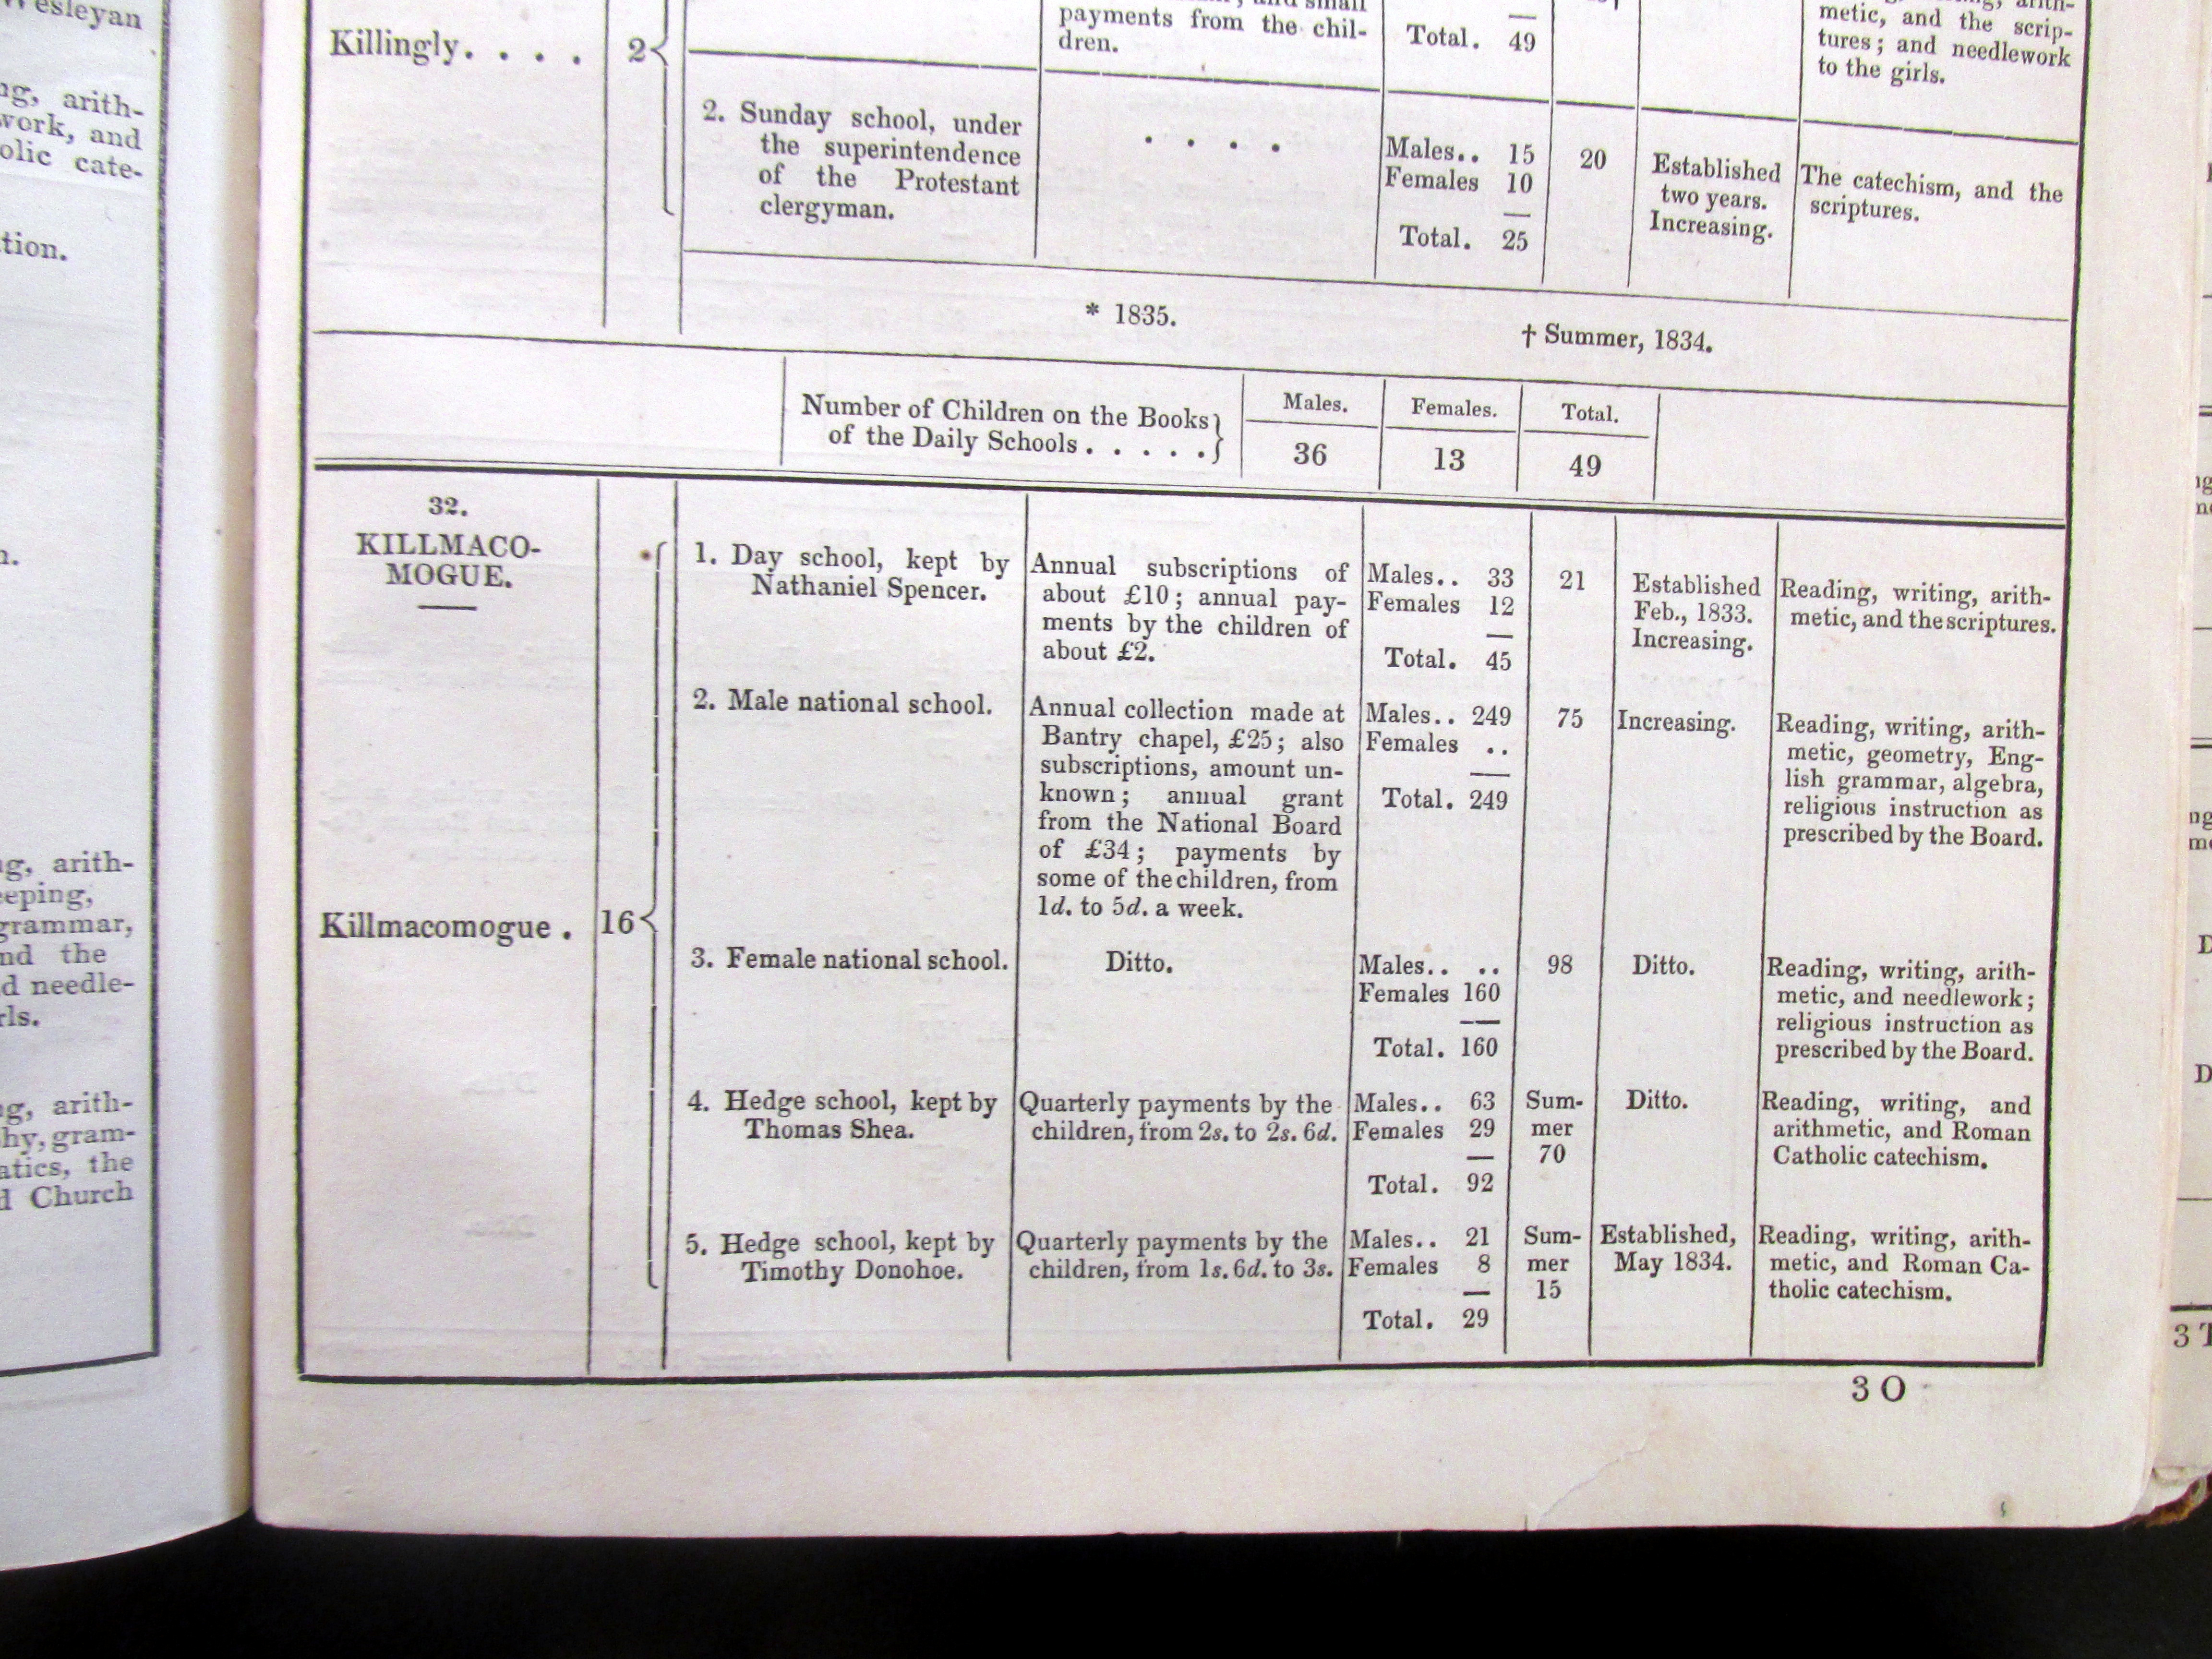 Wesleyan
arith-
work, and
cate-
arith-
grammar,
and the
needle-
arith-
gram-
the
Church
payments from the chil-
dren.
Total. 49
metic, and the scrip-
tures; and needlework
to the girls.
Killingly. . . . 2
2. Sunday school, under
the superintendence
of the Protestant
clergyman.
. . . .
Males.. 15
Females 10
Total. 25
20
Established
two years.
Increasing.
The catechism, and the
scriptures.
* 1835.
† Summer, 1834.
Number of Children on the Books
of the Daily Schools . . . . .
Males. Females. Total.
36 13 49
32.
KILLMACO-
MOGUE.
Killmacomogue . 16
1. Day school, kept by
Nathaniel Spencer.
Annual subscriptions of
about £10; annual pay-
ments by the children of
about £2.
Males.. 33
Females 12
Total. 45
21
Established
Feb., 1833.
Increasing.
Reading, writing, arith-
metic, and the scriptures.
2. Male national school.
Annual collection made at
Bantry chapel, £25; also
subscriptions, amount un-
known; annual grant
from the National Board
of £34; payments by
some of the children, from
1d. to 5d. a week.
Males.. 249
Females ..
Total. 249
75
Increasing.
Reading, writing, arith-
metic, geometry, Eng-
lish grammar, algebra,
religious instruction as
prescribed by the Board.
3. Female national school.
Ditto.
Males.. ..
Females 160
Total. 160
98
Ditto.
Reading, writing, arith-
metic, and needlework;
religious instruction as
prescribed by the Board.
4. Hedge school, kept by
Thomas Shea.
Quarterly payments by the
children, from 2s. to 2s. 6d.
Males.. 63
Females 29
Total. 92
Sum-
mer
70
Ditto.
Reading, writing, and
arithmetic, and Roman
Catholic catechism.
5. Hedge school, kept by
Timothy Donohoe.
Quarterly payments by the
children, from 1s. 6d. to 3s.
Males.. 21
Females 8
Total. 29
Sum-
mer
15
Established,
May 1834.
Reading, writing, arith-
metic, and Roman Ca-
tholic catechism.
3 O